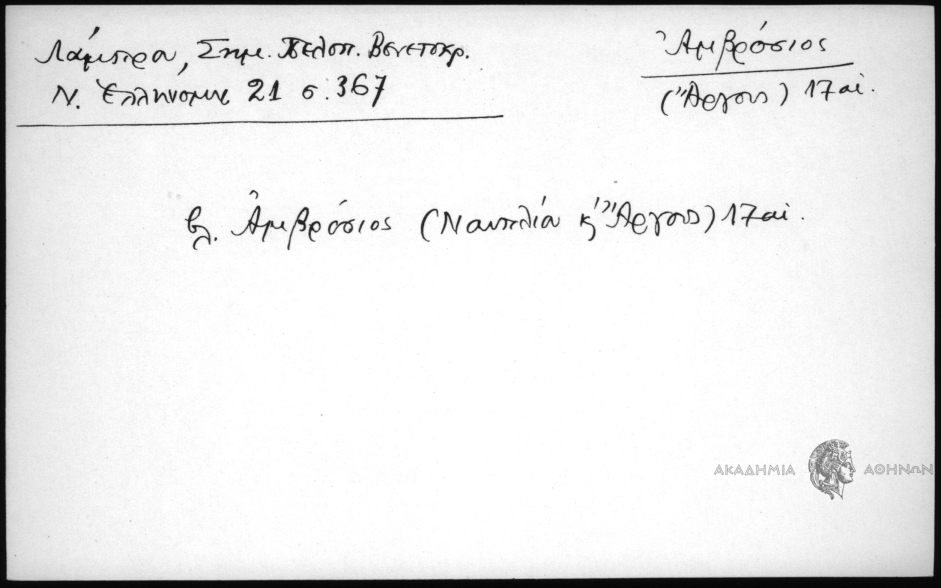 Λάμπρου, Σημ. Πελοπ. Βενετοκρ.
Ν. Ἑλληνομν 21 σ. 367
Ἀμβρόσιος
(Ἄργους) 17 αἰ.
βλ. Ἀμβρόσιος (Ναυπλίου κ' Ἄργους) 17 αἰ.
ΑΚΑΔΗΜΙΑ ΑΘΗΝΩΝ